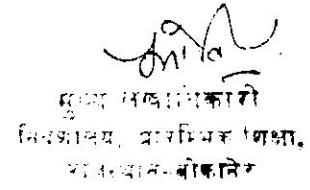 मुख्य लेखाधिकारी
निदेशालय, प्रारम्भिक शिक्षा,
राजस्थान-बीकानेर